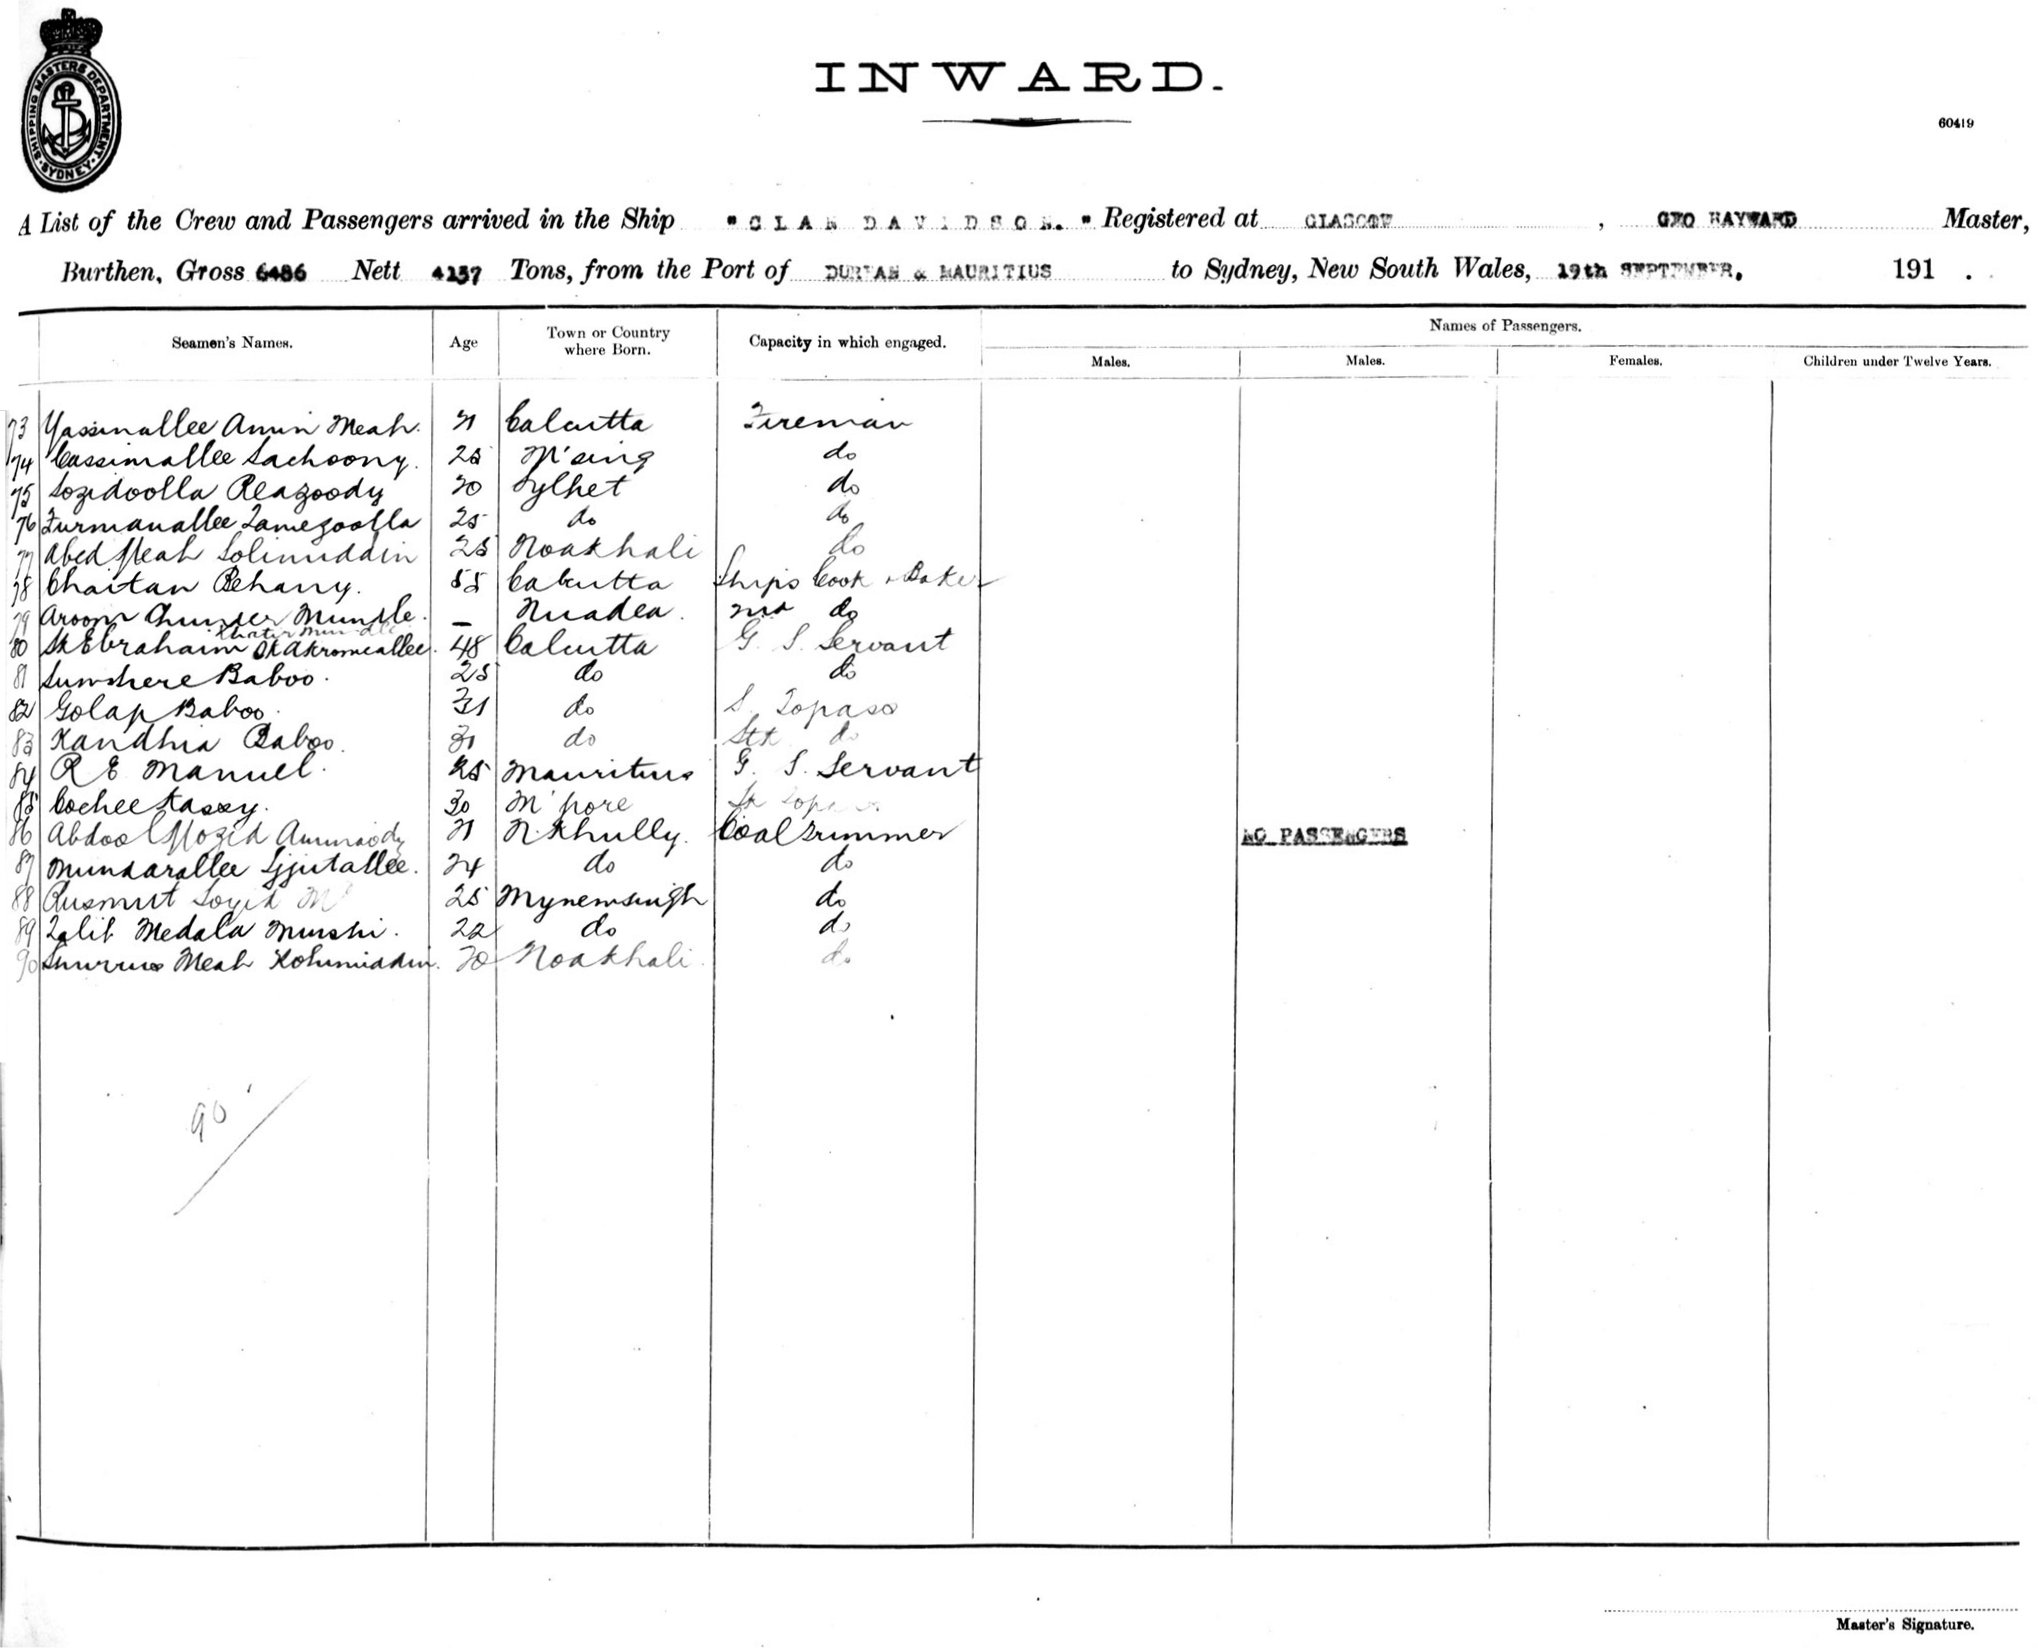 SHIPPING MASTERS DEPARTMENT · SYDNEY ·
INWARD.
60419
A List of the Crew and Passengers arrived in the Ship "CLAN DAVIDSON." Registered at GLASGOW , GEO HAYWARD Master,
Burthen, Gross 6486 Nett 4137 Tons, from the Port of DURBAN & MAURITIUS to Sydney, New South Wales, 19th SEPTEMBER, 191 .
Names of Passengers.
Seamen's Names. Age Town or Country where Born. Capacity in which engaged. Males. Males. Females. Children under Twelve Years.
73 Yassinallee Amin Meah. 21 Calcutta Fireman
74 Cassimallee Sachoony. 25 M'sing do
75 Sozidoolla Reazoody 20 Sylhet do
76 Furmanallee Zamezoolla 25 do do
77 Abed Meah Solimuddin 25 Noakhali do
78 Chaitan Behany. 55 Calcutta Ships Cook & Baker
79 Aroon Chunder Mundle. — Nuadea. do
80 Sk Ebrahaim Sk Akromeallee. 48 Calcutta G. S. Servant
81 Baboo. 25 do do
82 Golap Baboo. 31 do S. Topass
83 Kandhia Baboo. 31 do Stk do
84 R E Manuel. 25 Mauritius G. S. Servant
85 Cochee Kassy. 30 M'pore
86 Abdool Mozid 21 N. Khully. Coal Trimmer NO PASSENGERS
87 Mundarallee Ijjutallee. 24 do do
88 25 Mynemsingh do
89 Talib Medala Munshi. 22 do do
90 Meah 20 Noakhali. do
90
Master's Signature.